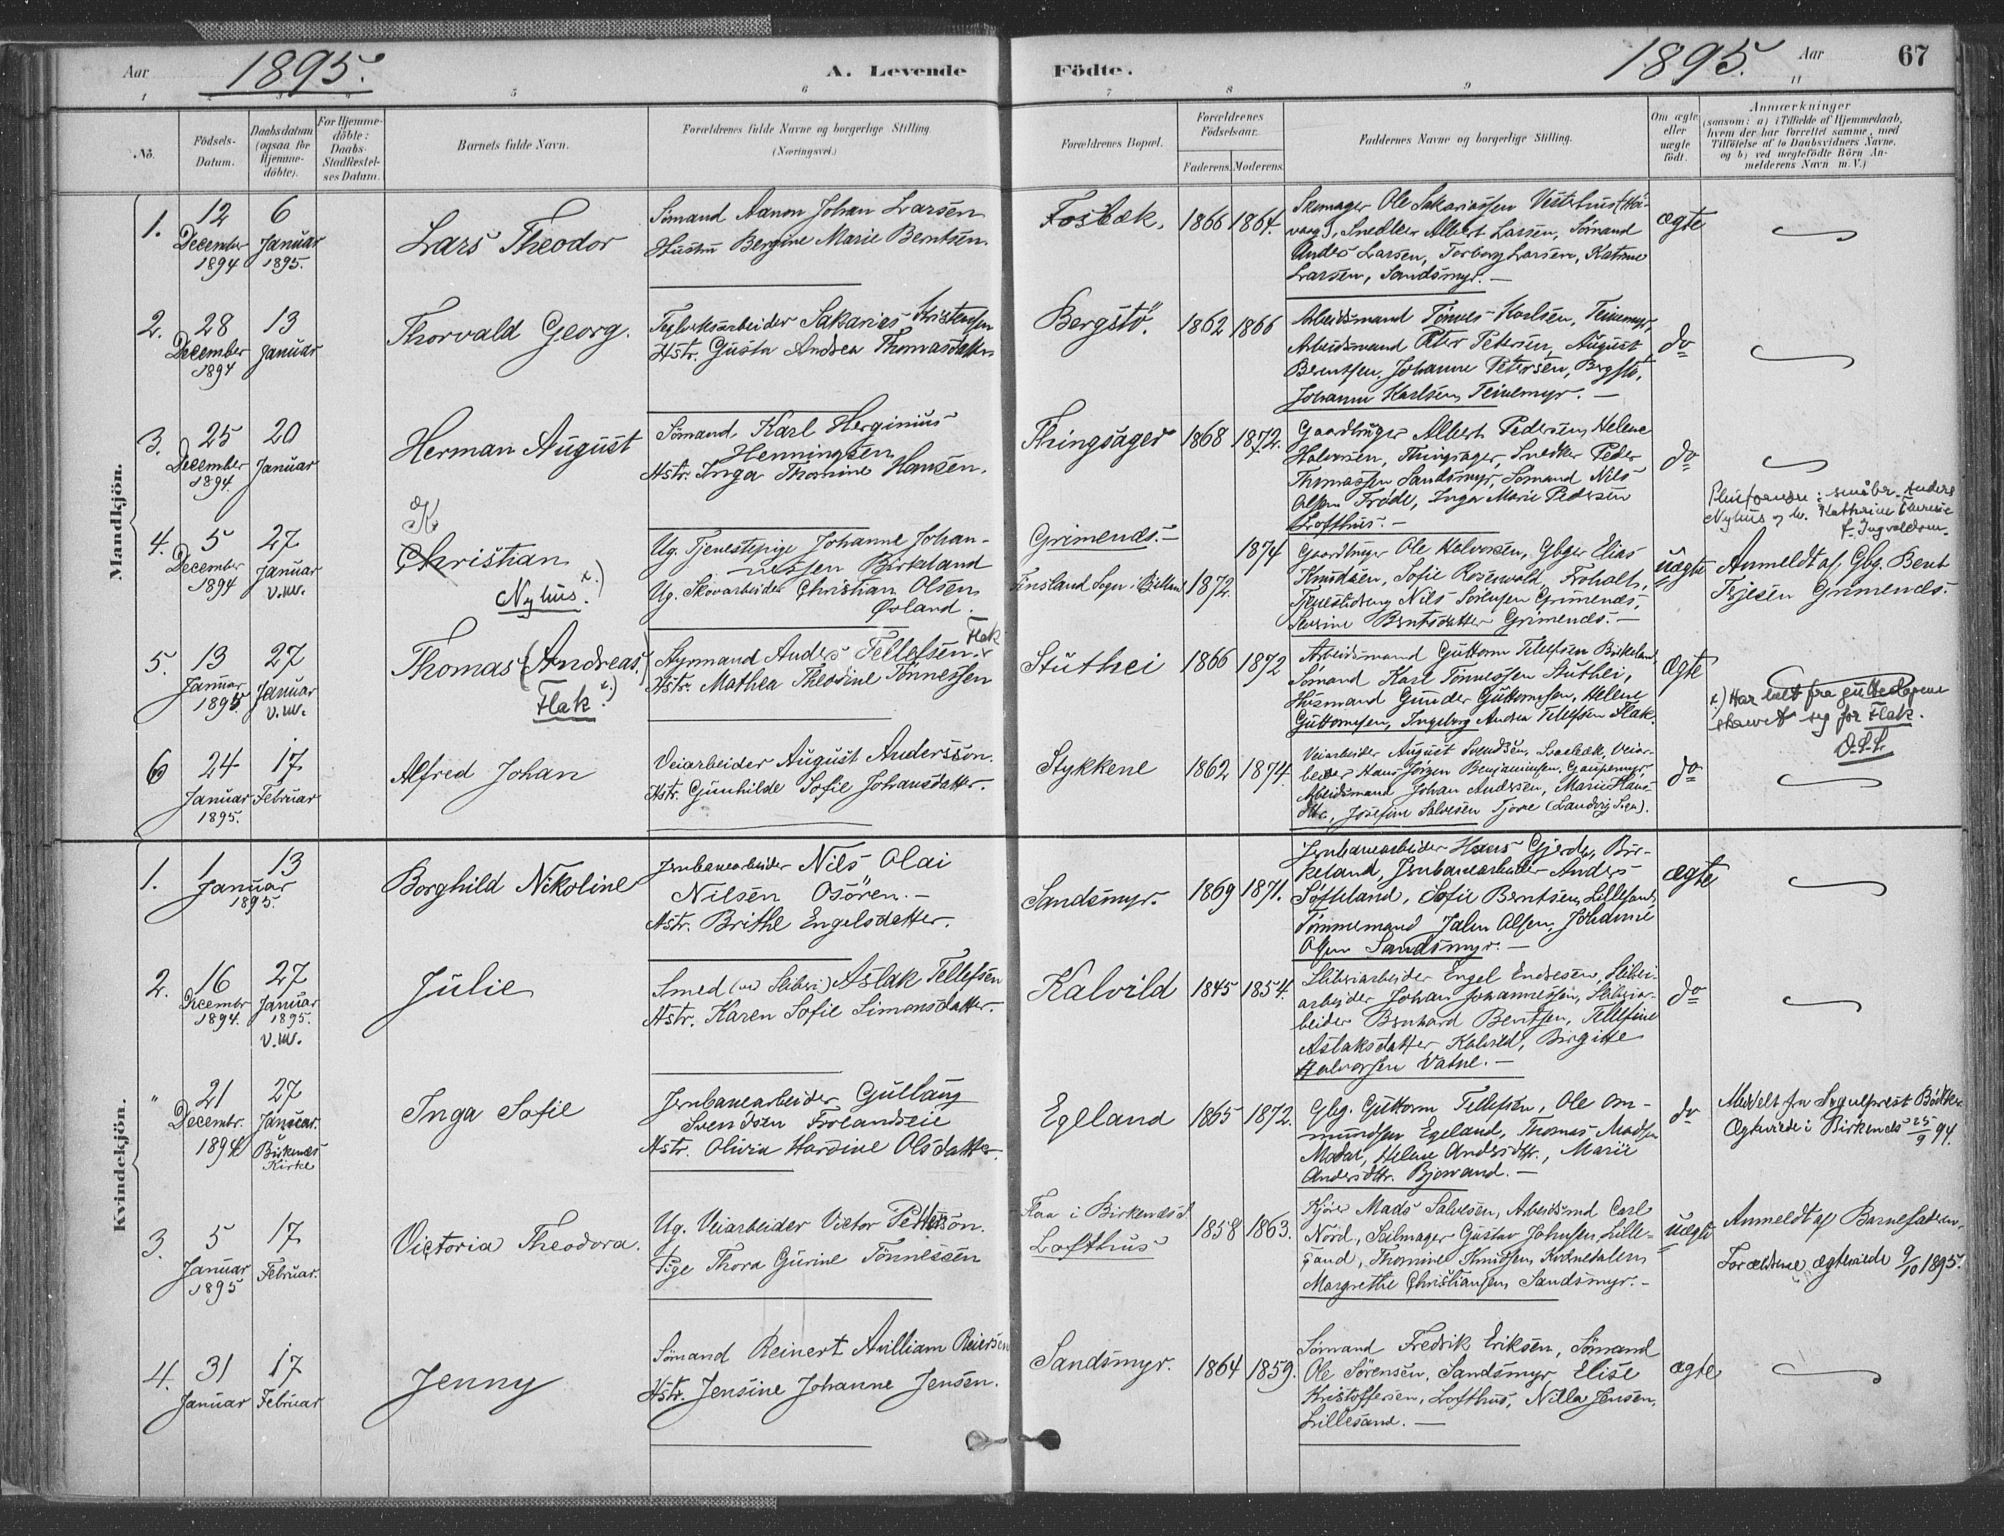 Aar 1895.
A. Levende Födte.
1895. Aar 67
1 2 3 4 5 6 7 8 9 11
No.
Födsels-Datum.
Daabsdatum (ogsaa for Hjemme-döbte).
For Hjemme-döbte: Daabs-Stadfæstel-ses Datum.
Barnets fulde Navn.
Forældrenes fulde Navne og borgerlige Stilling
(Næringsvei.)
Forældrenes Bopæl.
Forældrenes Födselsaar.
Faderens. Moderens.
Faddernes Navne og borgerlige Stilling.
Om ægte eller uægte födt.
Anmærkninger
(saasom: a) i Tilfælde af Hjemmedaab,
hvem der har forrettet samme, med
Tilföielse af to Daabsvidners Navne,
og b) ved uægtefödte Börn An-
melderens Navn m. V.)
Mandkjön.
1.
12 December 1894
6 Januar 1895.
Lars Theodor
Sömand Aanon Johan Larsen
Hustru Bergine Marie Berntsen.
Fosbæk.
1866 1864.
Skomager Ole Sakariassen Vesterhus
Snedker Albert Larsen, Sömand
Anders Larsen, Torborg Larsen, Katrine
Larsen, Sandsmyr. —
ægte
2.
28 December 1894
13 Januar
Thorvald Georg.
Teglverksarbeider Sakarias Kristensen
Hstr. Gusta Andrea Thomasdatter
Bergstö.
1862 1866
Arbeidsmand Tönnes Karlsen, Teinemyr,
Arbeidsmand Peter Petersen, August
Berntsen, Johanne Petersen, Bergstö,
Johanne Karlsen, Teinemyr. —
do
3.
25 December 1894.
20 Januar
Herman August
Sömand Karl Herginius
Henningsen
Hstr. Inga Thomine Hansen.
Thingsager
1868 1872.
Gaardbruger Albert Pedersen, Helene
Halvorsen, Thingsager, Snedker Peder
Thomassen Sandsmyr, Sömand Nils
Olsen Frøde, Inga Marie Pedersen
Lofthus. —
do
4.
5 December 1894
27 Januar v.m.
K
Christian
Nyhus. x.)
Ug. Tjenestepige Johanne Johan-
nessen Birkeland
Ug. Skovarbeider Christian Olsen
Øvland.
Grimends. —
Finsland Sogn i
1874
1872.
Gaardbruger Ole Halvorsen, Gbger Elias
Knudsen, Sofie Rosenvold, Froholt,
Tjenestedreng Nils Sörensen Grimends,
Berntsdatter Grimends. —
uægte
Pleieforældre: småbr. Anders
Nyhus og h. Kathrine Therese
f. Ingvaldsen.
Anmeldt af Gbg. Bent
Terjesen Grimends.
5.
13 Januar 1895
27 Januar v.m.
Thomas (Andreas.)
Flak x.)
Styrmand Anders Tellefsen Flak
Hstr. Mathea Theodine Tönnessen
Stuthei
1866 1872
Arbeidsmand Guttorm Tellefsen Birkeland
Sömand Karl Tönnessen Stuthei,
Husmand Gunder Guttormsen, Helene
Guttormsen, Ingeborg Andrea Tellefsen Flak.
ægte
x.) Har helt fra guttedagene
skrevet sig for Flak.
6
24 Januar 1895.
17 Februar
Alfred Johan
Veiarbeider August Andersson.
Hstr. Gunhilde Sofie Johansdatter.
Stykkene
1862 1874.
Veiarbeider August Svendsen, Veiar-
beider Hans Jörgen Benjaminsen,
Arbeidsmand Johan Andersen, Marie Hans-
Josefine Salvesen Tjore (Landvig Sogn).
do
Kvindekjön.
1.
1 Januar 1895.
13
Borghild Nikoline
Jernbanearbeider Nils Olai
Nilsen Osören. —
Hstr. Brithe Engelsdatter.
Sandsmyr.
1869 1871.
Jernbanearbeider Hans Gjerde, Bir-
keland, Jernbanearbeider Anders
Söfteland, Sofie Berntsen, Lillesand,
Tömmermand Olsen, Johanne
Olsen Sandsmyr. —
ægte
2.
16 December 1894.
27 Januar 1895. v.m.
Julie
Smed (ved Sliberi) Aslak Tellefsen
Hstr. Karen Sofie Simonsdatter.
Kalvild
1845 1854.
Sliberiarbeider Engel Endresen, Sliberi-
arbeider Johan Johannessen, Sliberiar-
beider Bernhard Bentsen, Tellefine
Aslaksdatter Kalvild, Birgitte
Halvorsen Vatne. —
do
"
21 Decembr. 1894
27 Januar. Birkenes Kirke
Inga Sofie
Jernbanearbeider Gullaug
Svendsen Frolandseie
Hstr. Olivia Hardine Olsdatter.
Egeland
1865 1872.
Gbg. Guttorm Tellefsen, Ole Om-
mundsen Egeland, Thomas Madsen
Helene Andersdtr., Marie
Andersdtr. Bjorvand. —
do
Meldt fra Sogneprest
Ægteviede i Birkenes 25/9 94.
3.
5 Januar 1895
17 Februar.
Victoria Theodora.
Ug. Veiarbeider Victor Petterson.
Pige Thora Gurine Tönnessen
Flaa i Birkenes S.
Lofthus
1858 1863.
Mads Salvesen, Arbeidsmd Carl
Nörd, Seilmager Gustav Johnsen, Lille-
sand, Thomine Knutsen,
Margrethe Christiansen, Sandsmyr. —
uægte
Anmeldt af Barnefaderen.
Forældrene ægteviede 9/10 1895.
4.
31 Januar
17 Februar
Jenny
Sömand Reinert William Reiersen
Hstr. Jensine Johanne Jensen.
Sandsmyr.
1864 1859.
Sömand Fredrik Eriksen, Sömand
Ole Sörensen, Sandsmyr, Elise
Kristoffersen, Lofthus, Nilla Jensen,
Lillesand. —
ægte